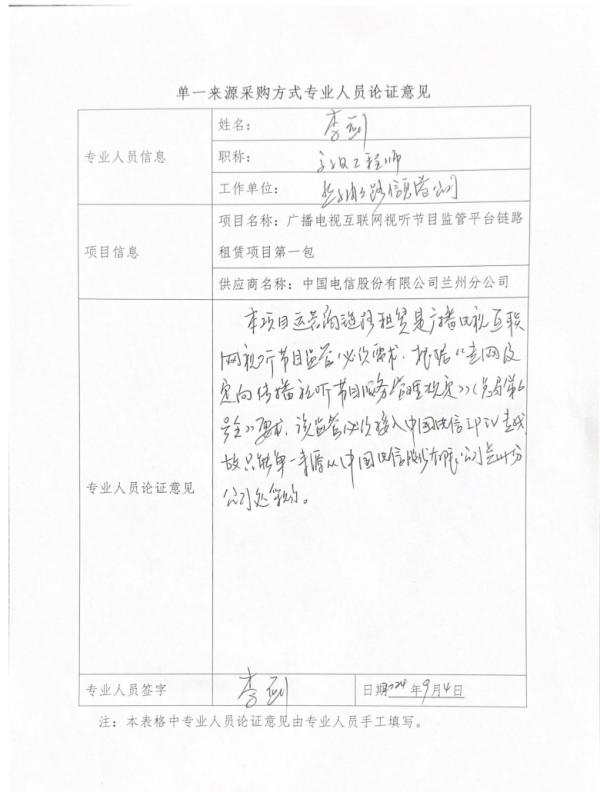 单一来源采购方式专业人员论证意见
专业人员信息
姓名：
李剑
职称：
高级工程师
工作单位：
公司
项目信息
项目名称：广播电视互联网视听节目监管平台链路
租赁项目第一包
供应商名称：中国电信股份有限公司兰州分公司
专业人员论证意见
本项目运营的链路租赁是广播电视互联
网视听节目监管必须要求，根据《专网及
定向传播视听节目服务管理规定》（总局第6
号令）要求，该监管必须接入中国电信IPTV专线
故只能单一来源从中国电信股份有限公司兰州分
公司处采购。
专业人员签字
李剑
日期2024年9月4日
注：本表格中专业人员论证意见由专业人员手工填写。